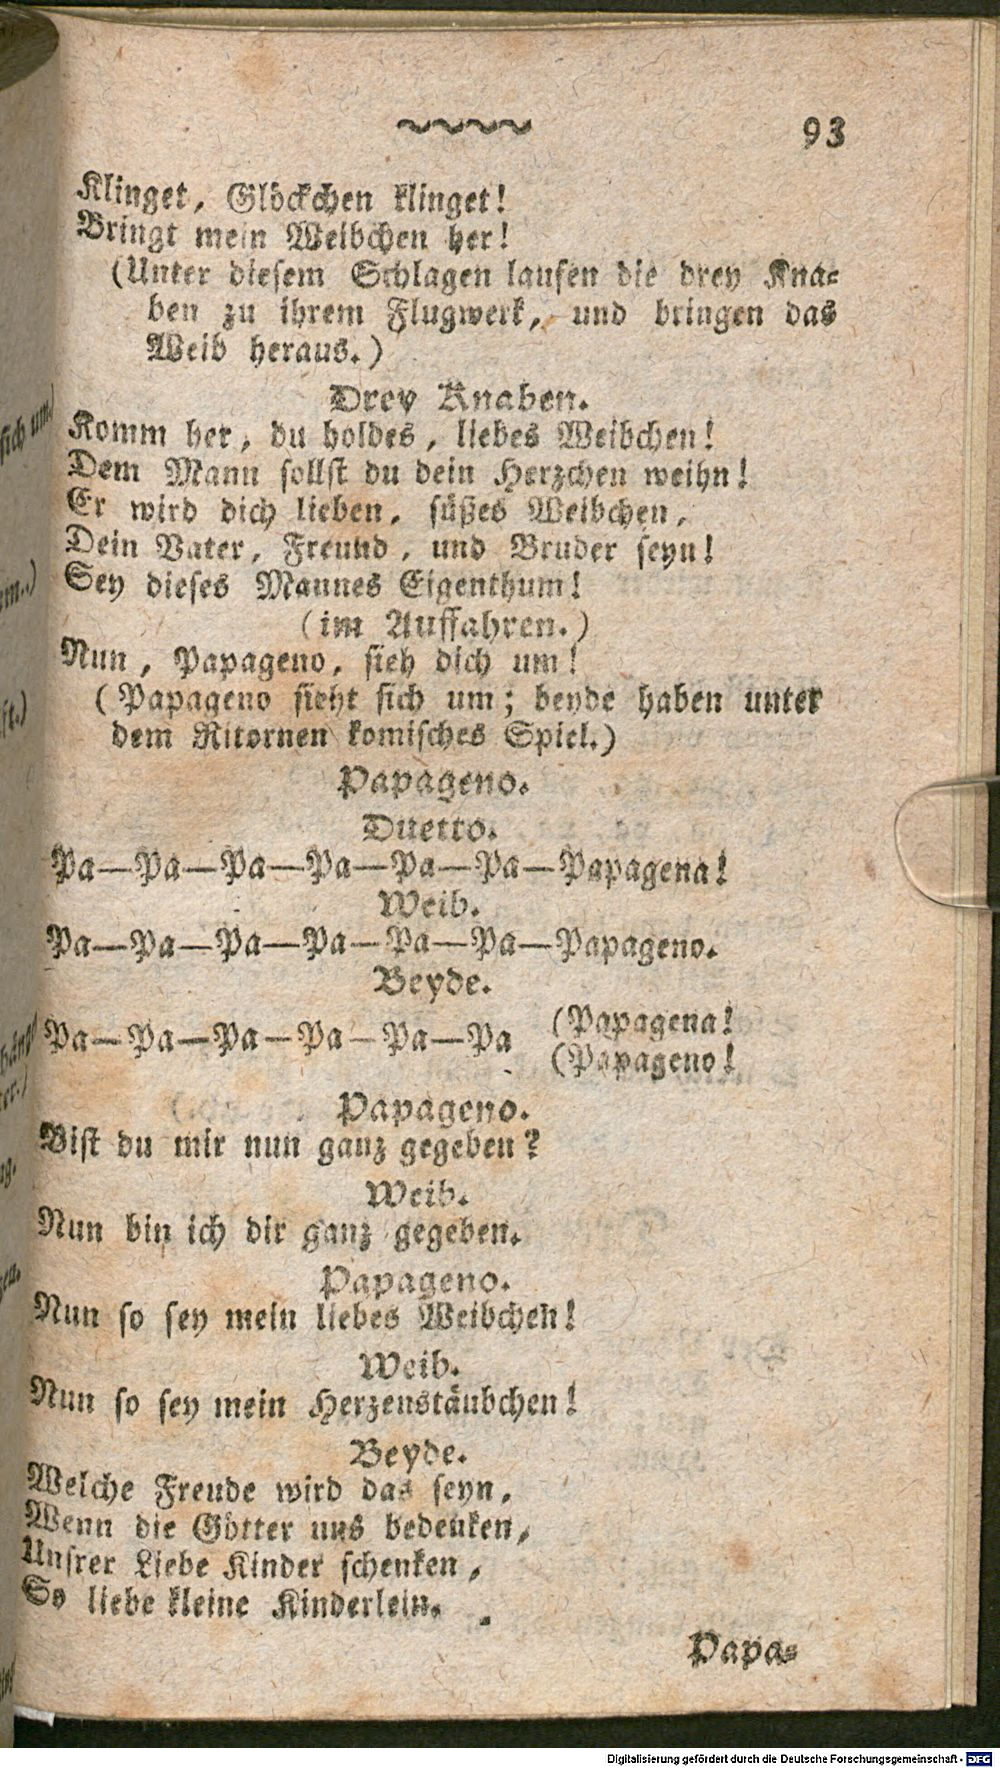 93
Klinget, Glöckchen klinget!
Bringt mein Weibchen her!
(Unter diesem Schlagen laufen die drey Kna-
ben zu ihrem Flugwerk, und bringen das
Weib heraus.)
Drey Knaben.
Komm her, du holdes, liebes Weibchen!
Dem Mann sollst du dein Herzchen weihn!
Er wird dich lieben, süßes Weibchen,
Dein Vater, Freund, und Bruder seyn!
Sey dieses Mannes Eigenthum!
(im Auffahren.)
Nun, Papageno, sieh dich um!
(Papageno sieht sich um; beyde haben unter
dem Ritornen komisches Spiel.)
Papageno.
Duetto.
Pa—Pa—Pa—Pa—Pa—Pa—Papagena!
Weib.
Pa—Pa—Pa—Pa—Pa—Pa—Papageno.
Beyde.
Pa—Pa—Pa—Pa—Pa—Pa (Papagena!
(Papageno!
Papageno.
Bist du mir nun ganz gegeben?
Weib.
Nun bin ich dir ganz gegeben.
Papageno.
Nun so sey mein liebes Weibchen!
Weib.
Nun so sey mein Herzenstäubchen!
Beyde.
Welche Freude wird das seyn,
Wenn die Götter uns bedenken,
Unsrer Liebe Kinder schenken,
So liebe kleine Kinderlein.
Papa-
Digitalisierung gefördert durch die Deutsche Forschungsgemeinschaft - DFG